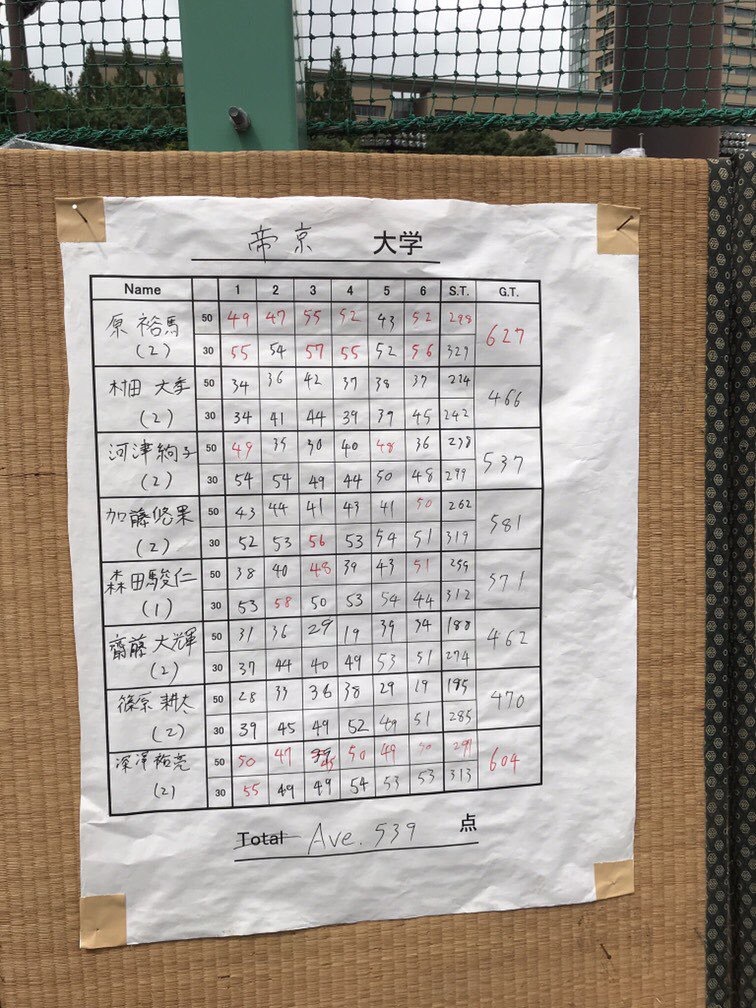 帝京 大学
Name 1 2 3 4 5 6 S.T. G.T.
原 裕馬 50 49 47 55 52 43 52 298 627
(2) 30 55 54 57 55 52 56 329
村田 大季 50 34 36 42 37 38 37 224 466
(2) 30 34 41 44 39 39 45 242
河津 絢子 50 49 35 30 40 48 36 238 537
(2) 30 54 54 49 44 50 48 299
加藤 悠果 50 43 44 41 43 41 50 262 581
(2) 30 52 53 56 53 54 51 319
森田 駿仁 50 38 40 48 39 43 51 259 571
(1) 30 53 58 50 53 54 44 312
齋藤 大輝 50 31 36 29 19 39 34 188 462
(2) 30 37 44 40 49 53 51 274
篠原 耕太 50 28 35 36 38 29 19 185 470
(2) 30 39 45 49 52 49 51 285
深澤 祐亮 50 50 47 45 50 49 50 291 604
(2) 30 55 49 49 54 53 53 313
Total Ave. 539 点